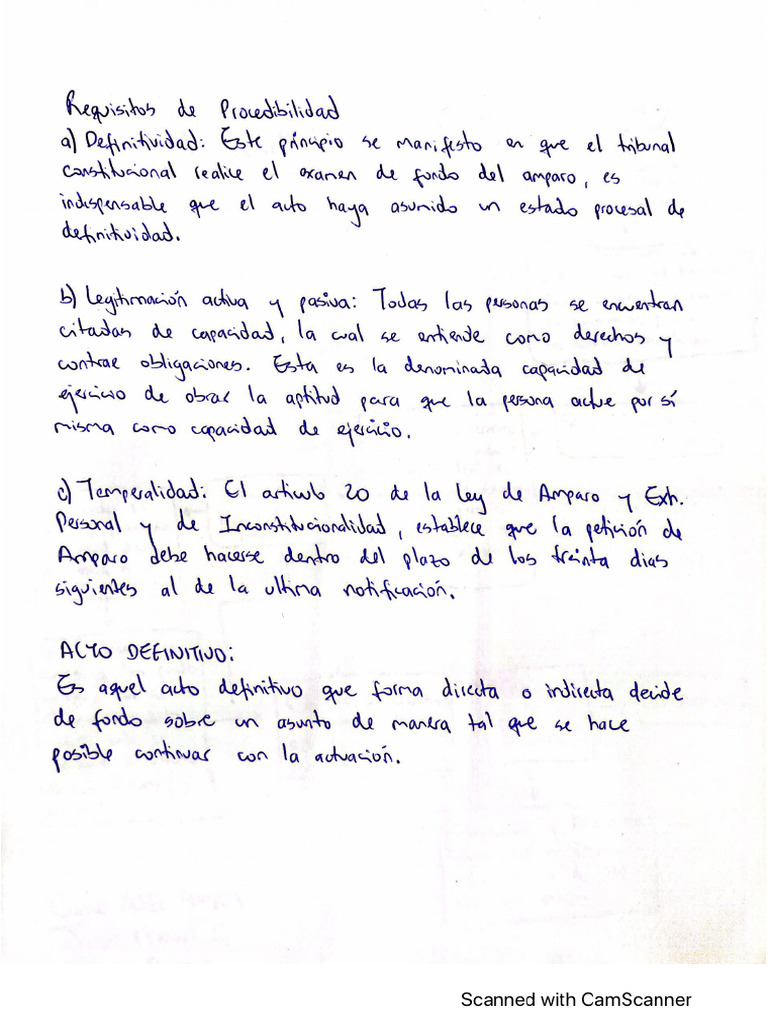 Requisitos de Procedibilidad
a) Definitividad: Este principio se manifesto en que el tribunal
constitucional realice el examen de fondo del amparo, es
indispensable que el acto haya asumido un estado procesal de
definitividad.
b) Legitimación activa y pasiva: Todas las personas se encuentran
citadas de capacidad, la cual se entiende como derechos y
contrae obligaciones. Esta es la denominada capacidad de
ejercicio de obrar la aptitud para que la persona actue por sí
misma como capacidad de ejercicio.
c) Temperalidad: El articulo 20 de la Ley de Amparo y Exh.
Personal y de Inconstitucionalidad, establece que la petición de
Amparo debe hacerse dentro del plazo de los treinta dias
siguientes al de la ultima notificación.
ACTO DEFINITIVO:
Es aquel acto definitivo que forma directa o indirecta decide
de fondo sobre un asunto de manera tal que se hace
posible continuar con la actuación.
Scanned with CamScanner